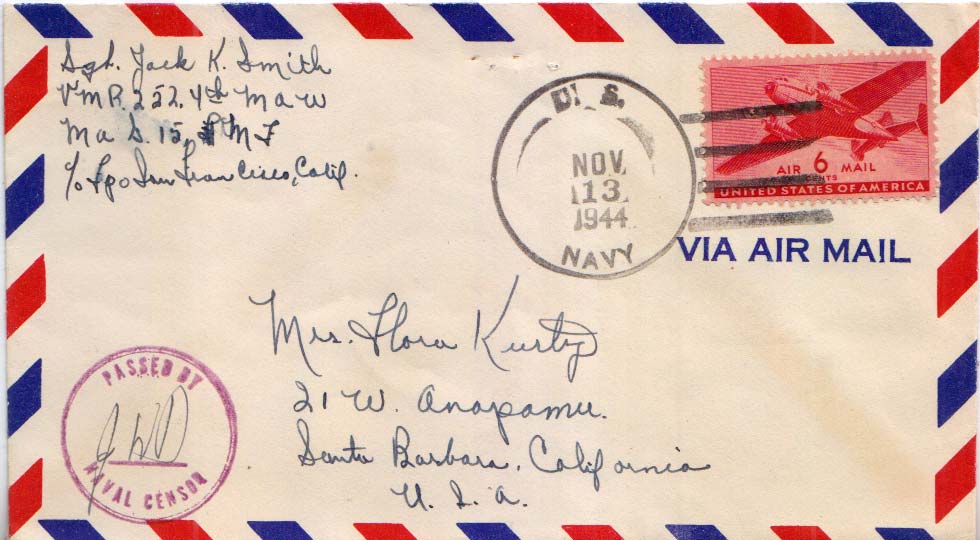 Sgt. Jack K. Smith
VMR. 252. 4th Maw
Ma S. 15, FMF
c/o Fpo San Francisco, Calif.
U. S.
NOV.
13
1944
NAVY
AIR 6 MAIL
CENTS
UNITED STATES OF AMERICA
VIA AIR MAIL
Mrs. Flora
21 W. Anapamu.
Santa Barbara. California
U. S. A.
PASSED BY
NAVAL CENSOR